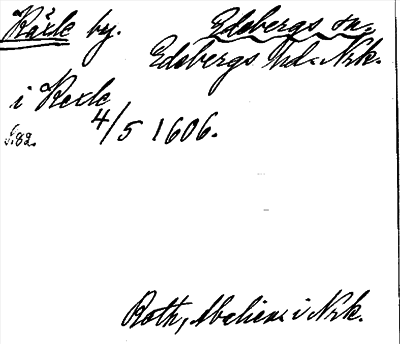 Kärle by. Edsbergs sn.
Edsbergs hd. Nrk.
i Kerle
s. 82. 4/5 1606.
Roth, Abelien i Nrk.